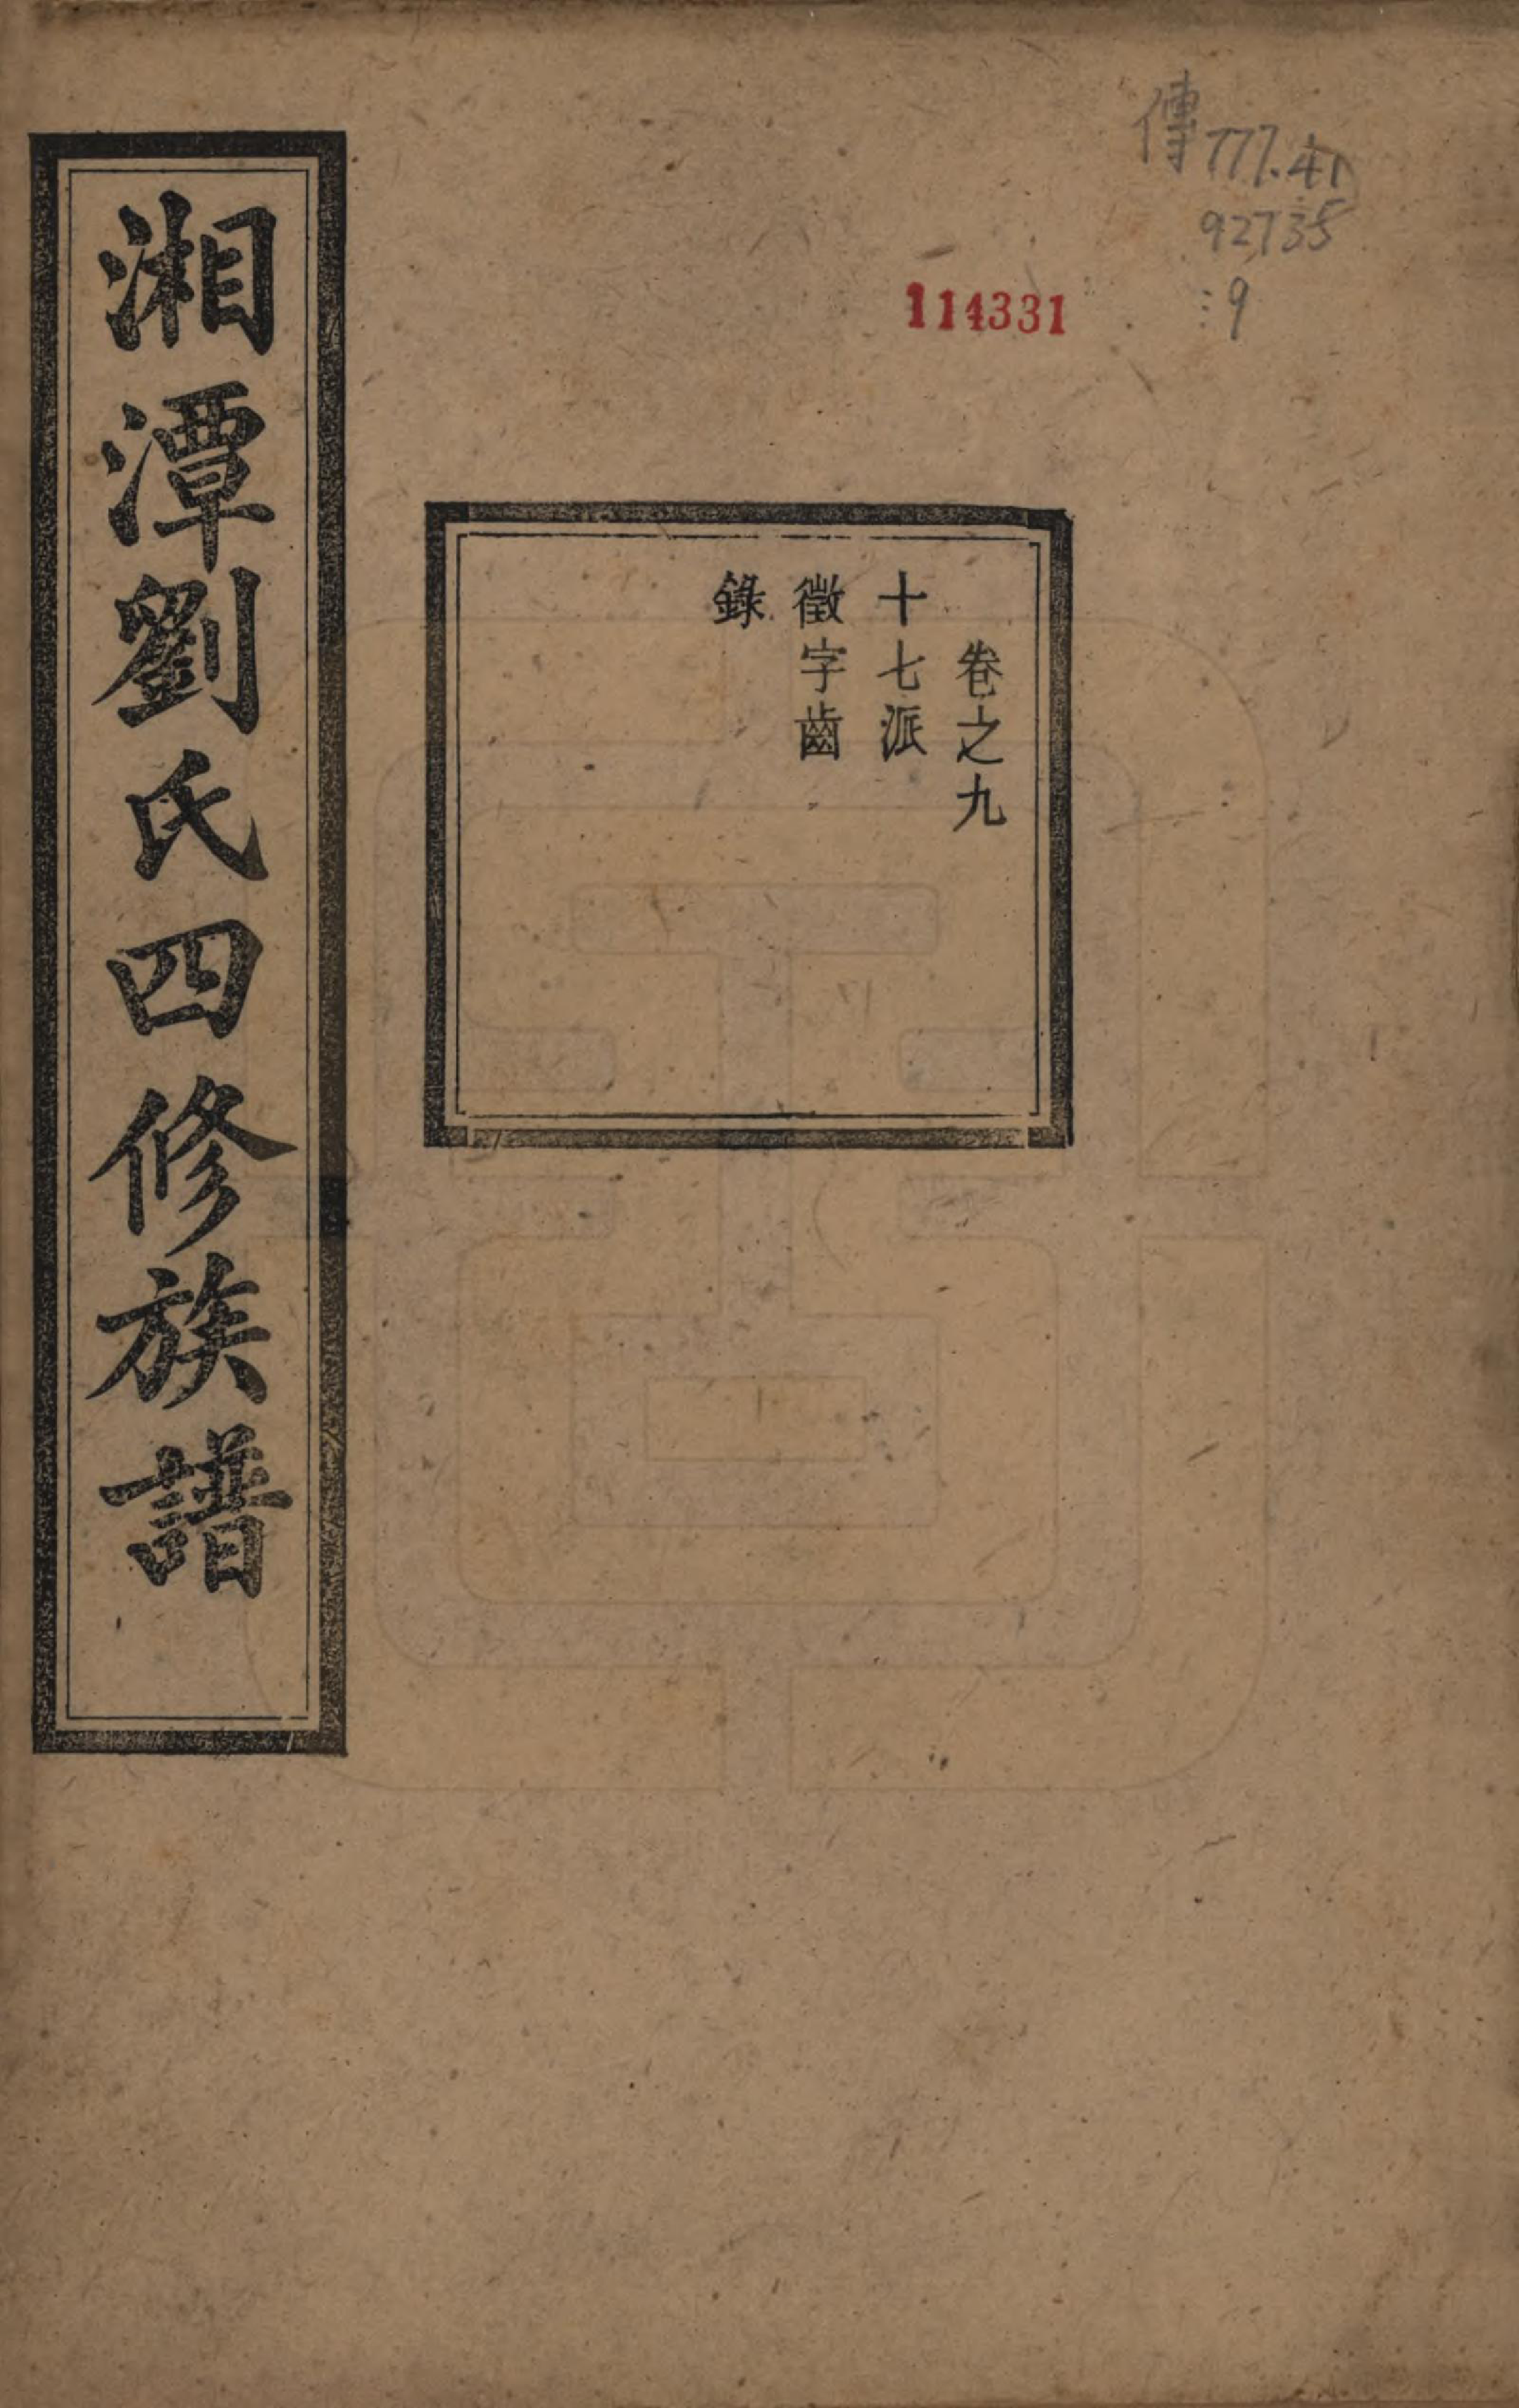 傳777.41
92735
:9
114331
卷之九
十七派
徵字齒
錄
湘潭劉氏四修族譜